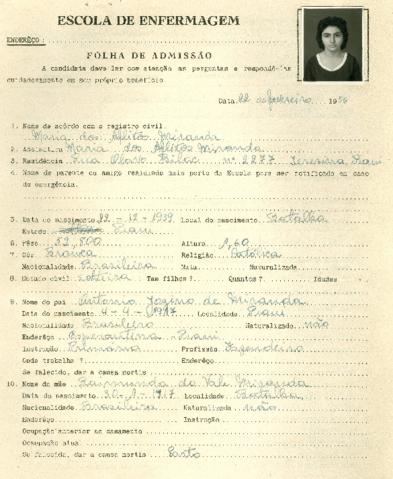 ESCOLA DE ENFERMAGEM
ENDERÊÇO:
FÔLHA DE ADMISSÃO
A candidata deve ler com atenção as perguntas e respondê-las
cuidadosamente em seu próprio benefício.
Data 22 de fevereiro 1956
1. Nome de acôrdo com o registro civil
Maria dos Aflitos Miranda
2. Assinatura Maria dos Aflitos Miranda
3. Residência Rua Olavo Bilac nº 2277 Teresina Piauí
4. Nome de parente ou amigo residindo mais perto da Escola para ser notificado em caso
de emergência.
5. Data do nascimento -12-1939 Local do nascimento Batalha
Estado Piauí
6. Pêso 52,800 Altura 1,60
7. Côr Branca Religião Católica
Nacionalidade Brasileira Nata Naturalizada
8. Estado civil solteira Tem filhos? Quantos? Idades
9. Nome do pai Antonio de Miranda
Data do nascimento 4-9-1917 Localidade Piauí
Nacionalidade Brasileiro Naturalizado não
Enderêço Esperantina Piauí
Instrução Primária Profissão Fazendeiro
Onde trabalha? Enderêço
Se falecido, dar a causa mortis
10. Nome da mãe Raimunda do Vale Miranda
Data do nascimento 30-1-1917 Localidade Batalha
Nacionalidade Brasileira Naturalizada não
Enderêço Instrução
Ocupação anterior ao casamento
Ocupação atual
Se falecida, dar a causa mortis Parto